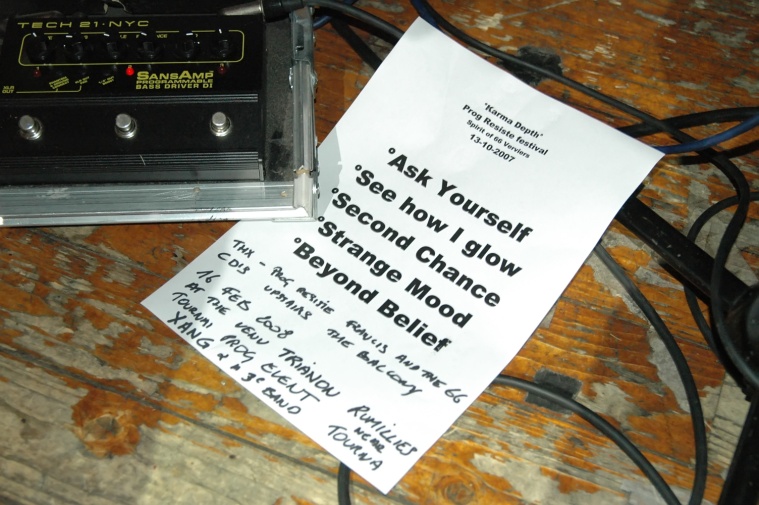 TECH 21·NYC
SANSAMP
PROGRAMMABLE
BASS DRIVER DI
OUT
"Karma Depth"
Prog Resiste festival
Spirit of 66 Verviers
13-10-2007
°Ask Yourself
°See how I glow
°Second Chance
°Strange Mood
°Beyond Belief
THX - PROG RESISTE FRANCIS AND THE 66
CD'S UPSTAIRS THE BALCONY
16 FEB 2008
AT THE VENU TRIANON RUMILLIES
NEAR
TOURNAI PROG EVENT TOURNA
XANG & A 3e BAND